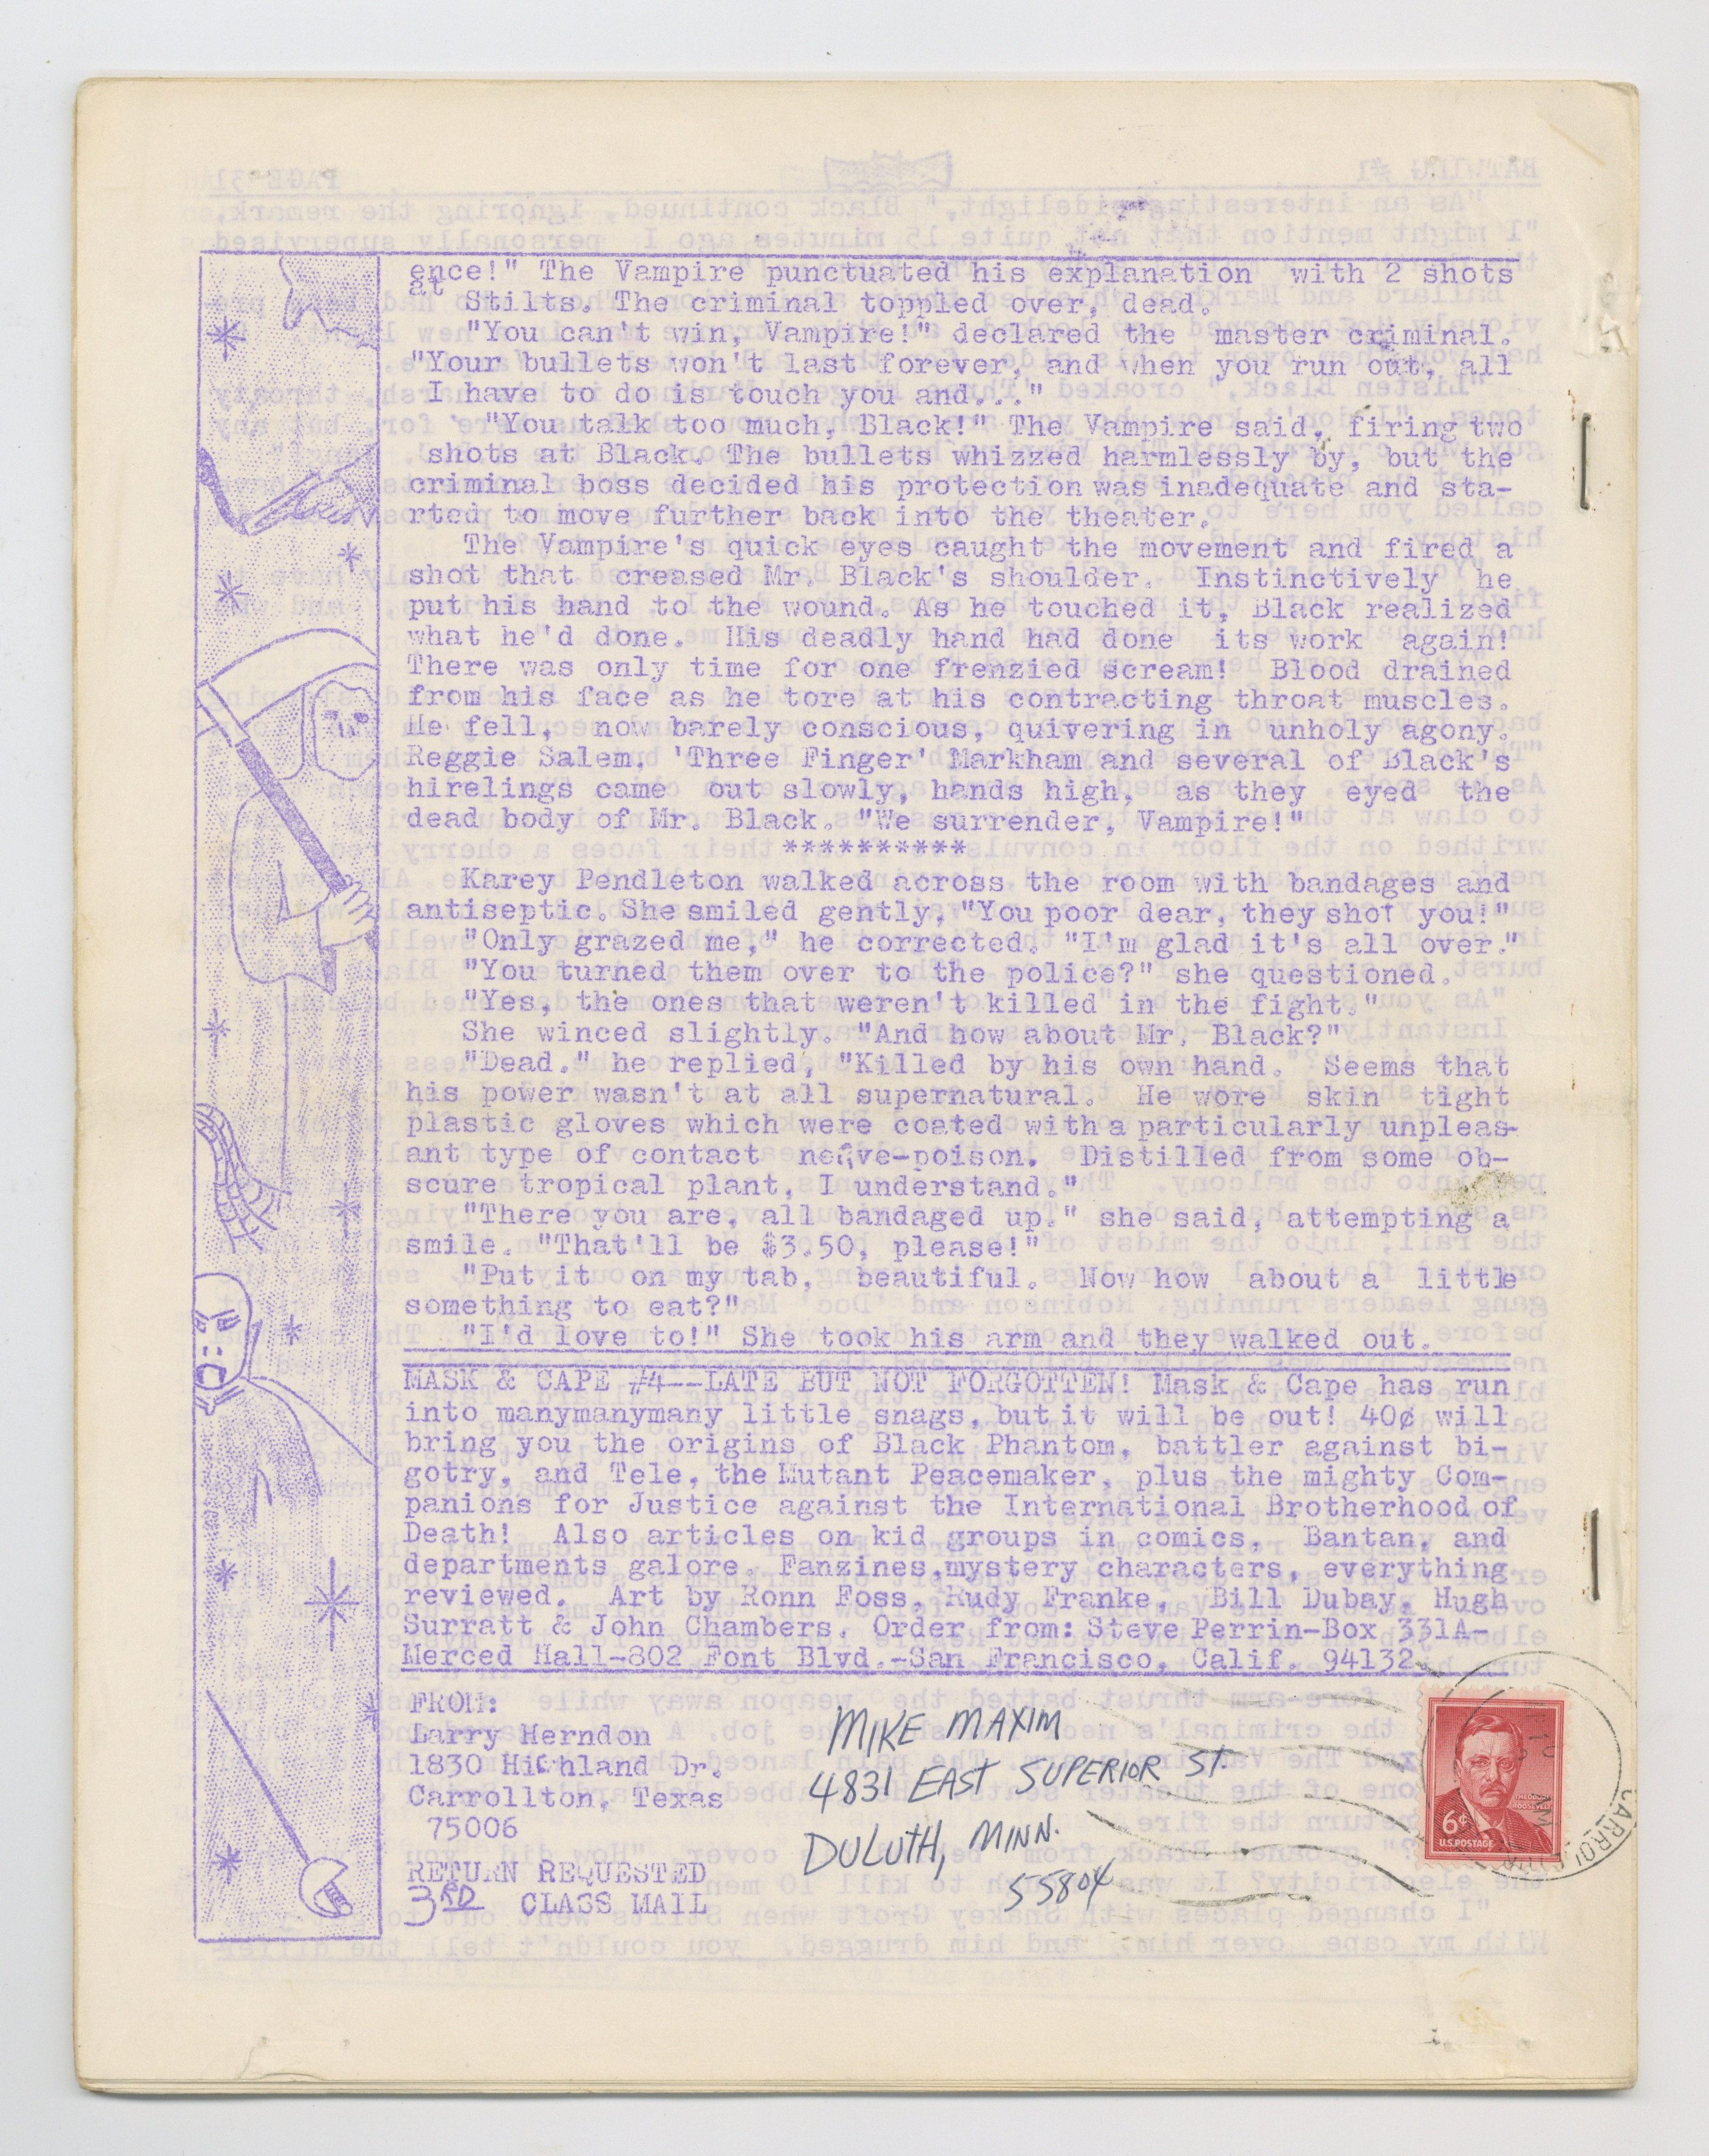 ence!" The Vampire punctuated his explanation with 2 shots
at Stilts. The criminal toppled over, dead.
"You can't win, Vampire!" declared the master criminal.
"Your bullets won't last forever, and when you run out, all
I have to do is touch you and..."
"You talk too much, Black!" The Vampire said, firing two
shots at Black. The bullets whizzed harmlessly by, but the
criminal boss decided his protection was inadequate and sta-
rted to move further back into the theater.
The Vampire's quick eyes caught the movement and fired a
shot that creased Mr. Black's shoulder. Instinctively he
put his hand to the wound. As he touched it, Black realized
what he'd done. His deadly hand had done its work again!
There was only time for one frenzied scream! Blood drained
from his face as he tore at his contracting throat muscles.
He fell, now barely conscious, quivering in unholy agony.
Reggie Salem, 'Three Finger' Markham and several of Black's
hirelings came out slowly, hands high, as they eyed the
dead body of Mr. Black. "We surrender, Vampire!"
**********
Karey Pendleton walked across the room with bandages and
antiseptic. She smiled gently, "You poor dear, they shot you!"
"Only grazed me," he corrected. "I'm glad it's all over."
"You turned them over to the police?" she questioned.
"Yes, the ones that weren't killed in the fight."
She winced slightly. "And how about Mr. Black?"
"Dead." he replied, "Killed by his own hand. Seems that
his power wasn't at all supernatural. He wore skin tight
plastic gloves which were coated with a particularly unpleas-
ant type of contact nerve-poison. Distilled from some ob-
scure tropical plant, I understand."
"There you are, all bandaged up." she said, attempting a
smile. "That'll be $3.50, please!"
"Put it on my tab, beautiful. Now how about a little
something to eat?"
"I'd love to!" She took his arm and they walked out.
MASK & CAPE #4--LATE BUT NOT FORGOTTEN! Mask & Cape has run
into manymanymany little snags, but it will be out! 40¢ will
bring you the origins of Black Phantom, battler against bi-
gotry, and Tele, the Mutant Peacemaker, plus the mighty Com-
panions for Justice against the International Brotherhood of
Death! Also articles on kid groups in comics, Bantan, and
departments galore. Fanzines, mystery characters, everything
reviewed. Art by Ronn Foss, Rudy Franke, Bill Dubay, Hugh
Surratt & John Chambers. Order from: Steve Perrin-Box 331A-
Merced Hall-802 Font Blvd.-San Francisco, Calif. 94132.
FROM:
Larry Herndon
1830 Highland Dr.
Carrollton, Texas
75006
RETURN REQUESTED
3RD CLASS MAIL
MIKE MAXIM
4831 EAST SUPERIOR ST.
DULUTH, MINN.
55804
THEODORE
ROOSEVELT
6¢
U.S. POSTAGE